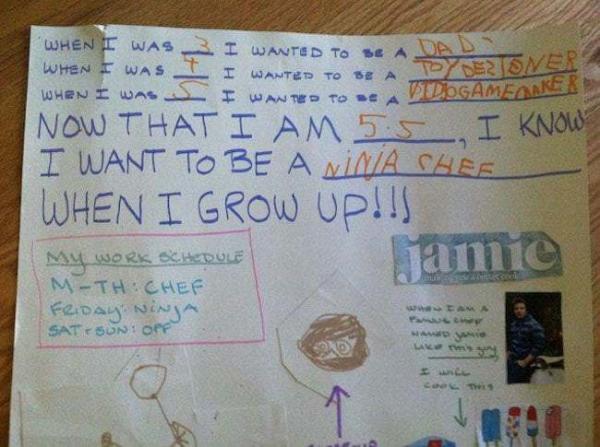 WHEN I WAS 3 I WANTED TO BE A DAD
WHEN I WAS 4 I WANTED TO BE A TOY DEZIGNER
WHEN I WAS 5 I WANTED TO BE A VIDIOGAMEMAKER
NOW THAT I AM 5.5, I KNOW
I WANT TO BE A NINJA CHEF
WHEN I GROW UP!!!
MY WORK SCHEDULE
M-TH: CHEF
FRIDAY: NINJA
SAT + SUN: OFF
jamie
WHEN I AM A
FAMOUS CHEF
NAMED JAMIE
LIKE THIS guy
I WILL
COOK THIS